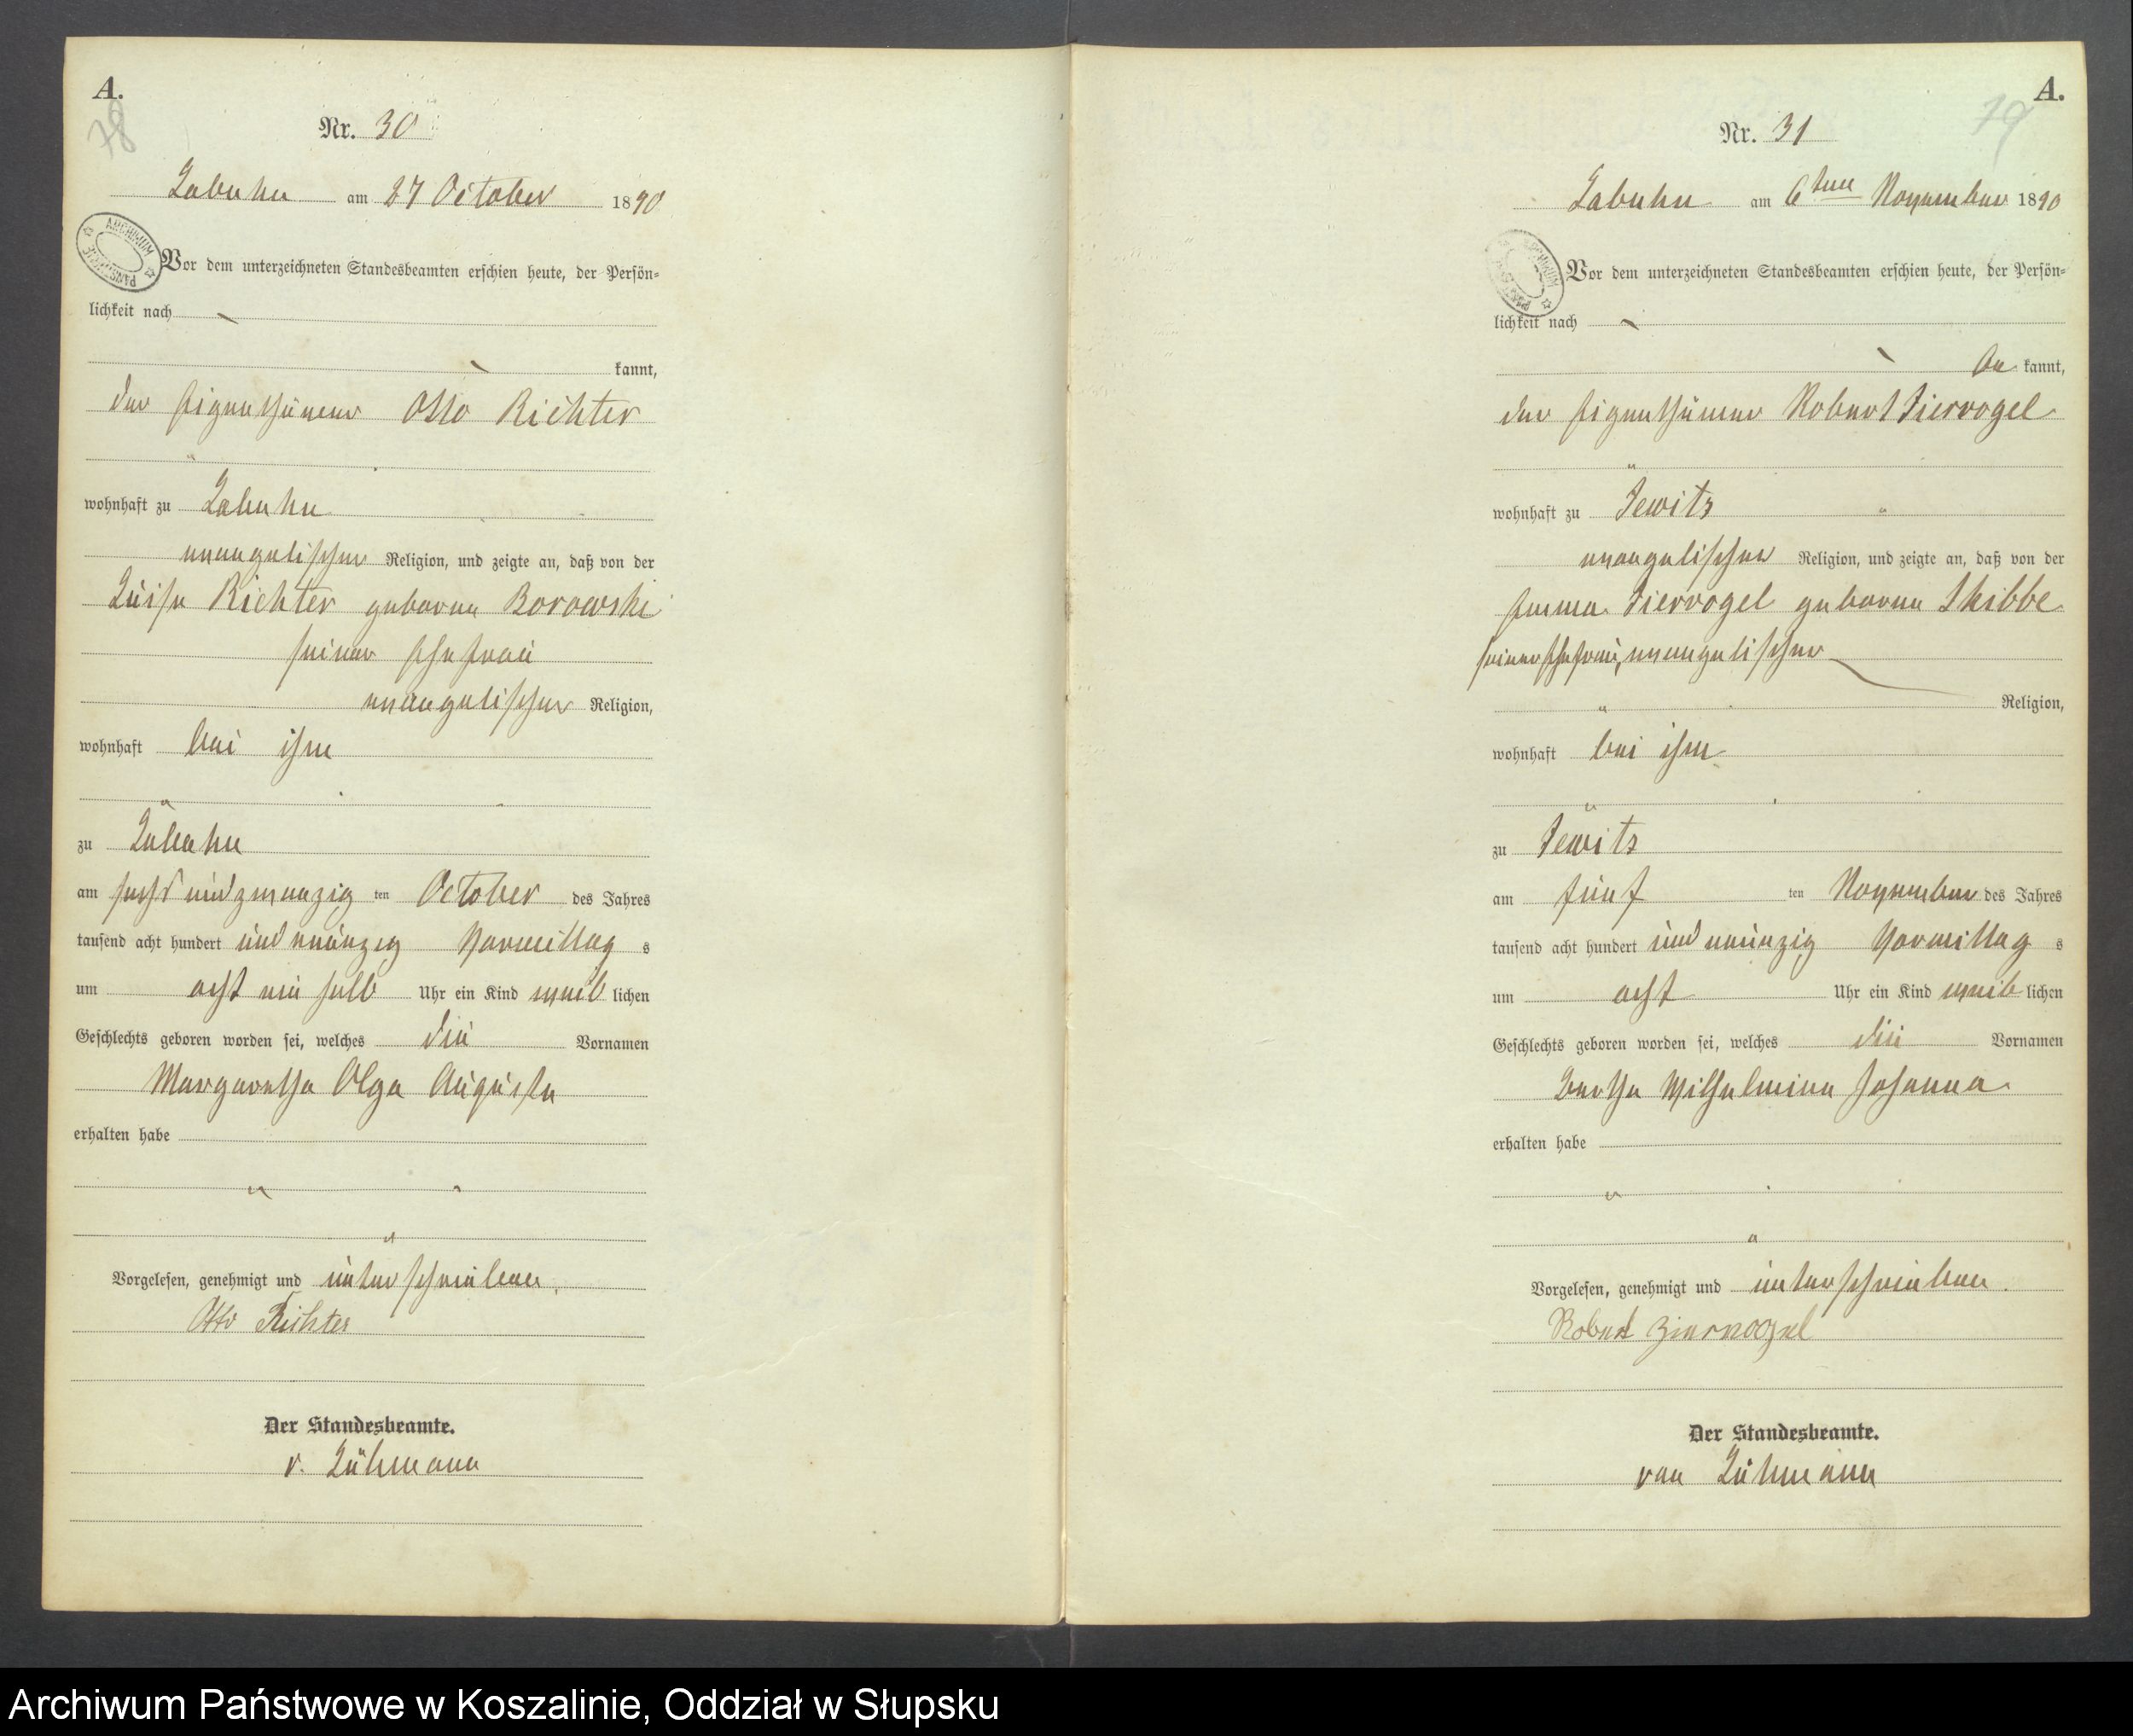 A.
78
Nr. 30
Labuhn am 27 October 1890
ARCHIWUM PAŃSTWOWE
Vor dem unterzeichneten Standesbeamten erschien heute, der Persön-
lichkeit nach
kannt,
der Eigenthümer Otto Richter
wohnhaft zu Labuhn
evangelischer Religion, und zeigte an, daß von der
Luise Richter geborene Borowski
seiner Ehefrau
evangelischer Religion,
wohnhaft bei ihm
zu Labuhn
am sechs und zwanzig ten October des Jahres
tausend acht hundert und neunzig Vormittag s
um acht ein halb Uhr ein Kind weib lichen
Geschlechts geboren worden sei, welches die Vornamen
Margarethe Olga Auguste
erhalten habe
Vorgelesen, genehmigt und unterschrieben.
Otto Richter
Der Standesbeamte.
v. Lühmann
A.
79
Nr. 31
Labuhn am 6ten November 1890
Vor dem unterzeichneten Standesbeamten erschien heute, der Persön-
lichkeit nach
be kannt,
der Eigenthümer Robert Ziervogel
wohnhaft zu Jewitz
evangelischer Religion, und zeigte an, daß von der
Emma Ziervogel geborene Skibbe
seiner Ehefrau, evangelischer
Religion,
wohnhaft bei ihm
zu Jewitz
am fünf ten November des Jahres
tausend acht hundert und neunzig Vormittag s
um acht Uhr ein Kind weib lichen
Geschlechts geboren worden sei, welches die Vornamen
Bertha Wilhelmine Johanna
erhalten habe
Vorgelesen, genehmigt und unterschrieben.
Robert Ziervogel
Der Standesbeamte.
von Lühmann
Archiwum Państwowe w Koszalinie, Oddział w Słupsku